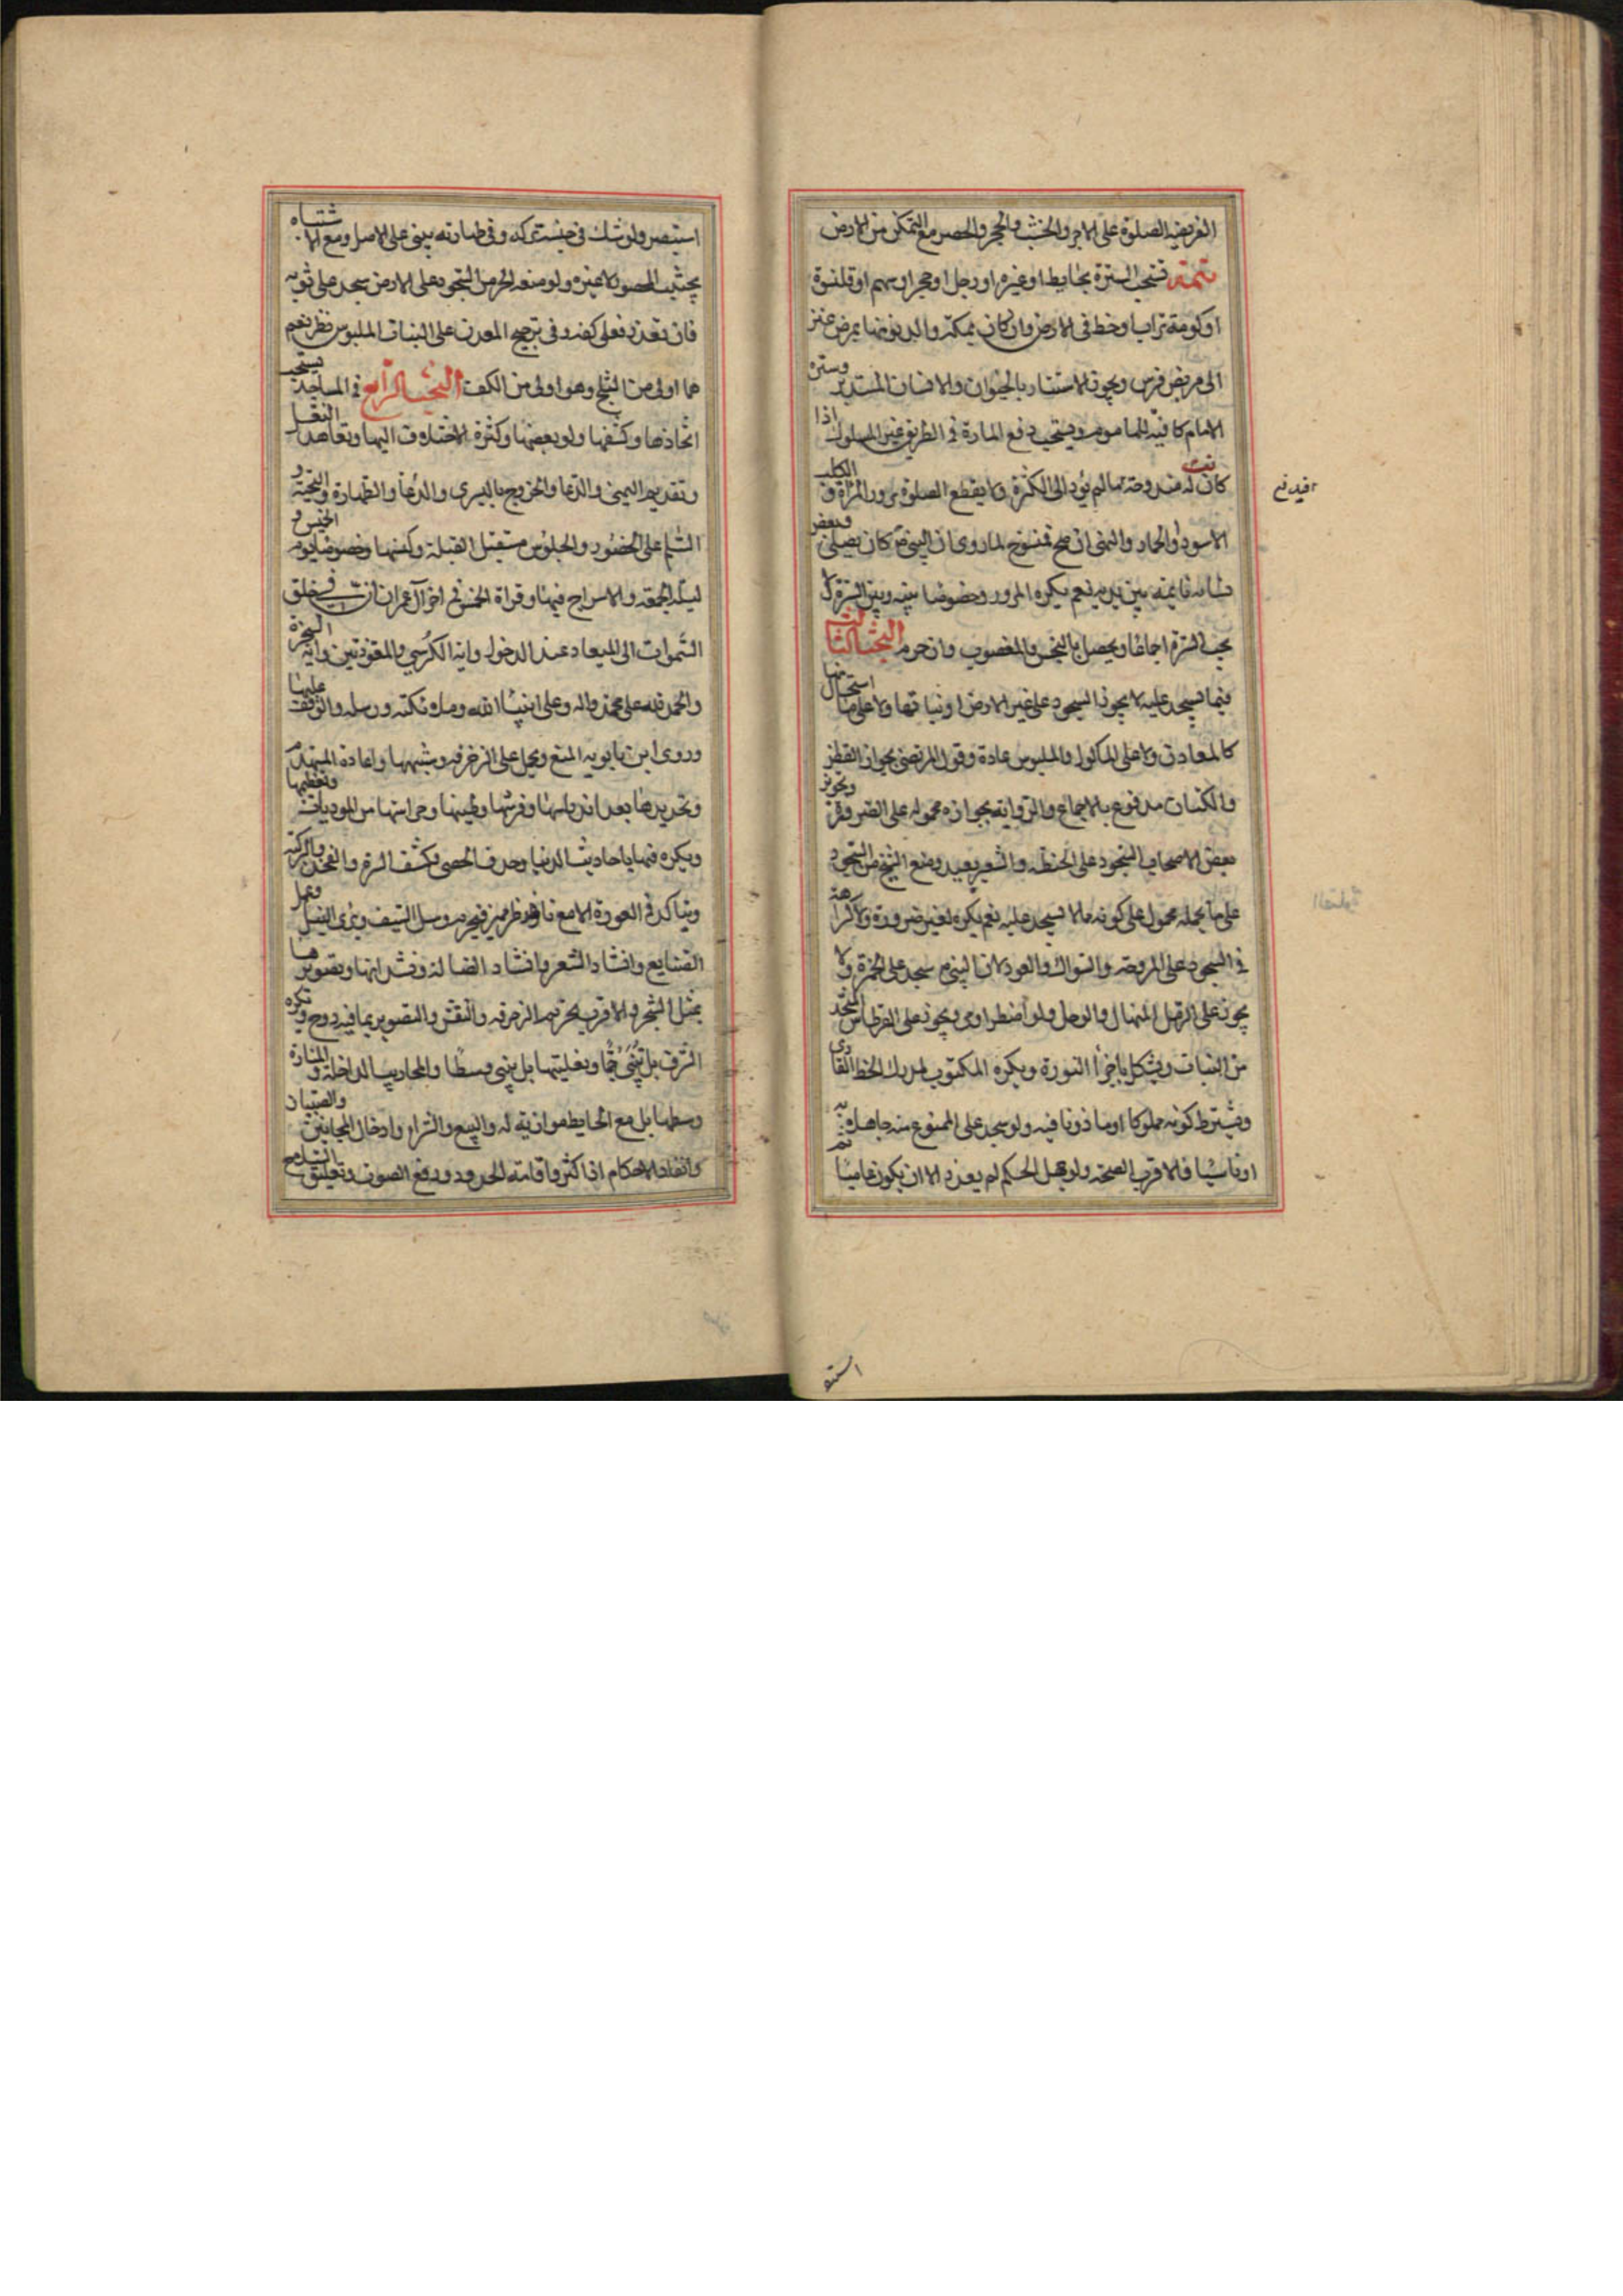 الفريضه الصلوة على الاجر والخشب والحجر والحصر مع التمكن من الارض
تتمة تستحب السترة بحايط او غيره او رجل او حجر او سهم او قلنسوة
او كومة تراب او خط فى الارض وان كان بمكة والدنو منها بمربض عنز
الى مربض فرس ويجوز الاستتار بالحيوان والانسان المستدبر وسترة
الامام كافية للمأموم ويستحب دفع المارة فى الطريق غير المسلوك اذا
كانت له مندوحة ما لم يؤد الى الكثرة ولا يقطع الصلوة مرور المراة والكلب
الاسود والحمار والنهى ان صح فمنسوخ لما روى ان النبى ص كان يصلى وبعض
نسائه نايمة بين يديه نعم يكره المرور وخصوصا بينه وبين السترة ولا
يجب السترة اجماعا ويحصل بالنجس والمغصوب وان حرم البحث الثالث
فيما يسجد عليه لا يجوز السجود على غير الارض او نباتها ولا على ما استحال منها
كالمعادن ولا على المأكول والملبوس عادة وقول المرتضى بجواز القطن
والكتان مدفوع بالاجماع والرواية بجوازه محمولة على الضرورة وتجويز
بعض الاصحاب السجود على الحنطه والشعير بعيد ومنع الشيخ من السجود
على ما يحمله محمول على كونه مما لا يسجد عليه نعم يكره لغير ضرورة ولا كراهة
فى السجود على المروحة والسواك والعود لان النبى ص سجد على الخمرة ولا
يجوز على الرمل المنهال والوحل ولو اضطر اومى ويجوز على القرطاس المتخذ
من النبات ويشكل باجزاء النورة ويكره المكتوب لمدرك الخط القارى
ويشترط كونه مملوكا او ماذونا فيه ولو سجد على الممنوع منه جاهلا به
او ناسيا فالاقرب الصحة ولو جهل الحكم لم يعذر الا ان يكون عاميا ثم
استبصر
استبصر ولو شك فى جنسه تركه وفى طهارته يبنى على الاصل ومع الاشتباه
يجتنب المحصور لا غيره ولو منعه الحر من السجود على الارض سجد على ثوبه
فان تعذر فعلى كفه وفى ترجيح المعدن على النبات الملبوس نظر نعم
هما اولى من الثلج وهو اولى من الكف البحث الرابع فى المساجد يستحب
اتخاذها وكشفها ولو بعضها وكثرة الاختلاف اليها وتعاهد النعل
وتقديم اليمنى والدعا والخروج باليسرى والدعا والطهارة والتحية و
السلم على الحضور والجلوس مستقبل القبلة وكنسها وخصوصا يوم الخميس و
ليلة الجمعة والاسراج فيها وقراة الخمس فى اخر آل عمران ان فى خلق
السموات الى الميعاد عند الدخول واية الكرسي والمعوذتين واية السخرة
والحمد لله على محمد واله وعلى انبياء الله وملائكته ورسله والوقف عليها
وروى ابن بابويه المنع ويحمل على الزخرفه وشبهها واعادة المنهدم
وتجديدها بعد اندراسها وفرشها وتطيينها وحراستها من الموذيات وتعظيمها
ويكره فيها احاديث الدنيا وحذف الحصى وكشف السرة والفخذ والركبة
ويتاكد فى العورة الا مع ناظر مميز فيحرم وسل السيف وبرى النبل وعمل
الصنايع وانشاد الشعر وانشاد الضالة ونشدانها وتصويرها
بمثل الشجر والاقرب تحريم الزخرفه والنقش والتصوير بما فيه روح وتكره
الشرف بل تبنى جما وتعليتها بل يبنى وسطا والمحاريب الداخلة والمنارة
وسطها بل مع الحايط موازية له والبيع والشراء وادخال المجانين والصبيان
وانفاذ الاحكام اذا كثر واقامة الحدود ورفع الصوت وتعليق السلاح